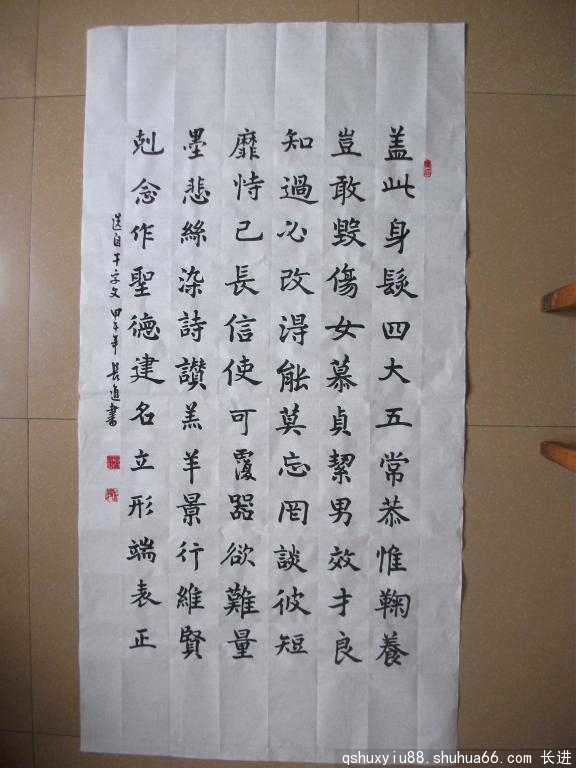 盖此身髮四大五常恭惟鞠養
豈敢毀傷女慕貞絜男效才良
知過必改得能莫忘罔談彼短
靡恃己長信使可覆器欲難量
墨悲絲染詩讚羔羊景行維賢
剋念作聖德建名立形端表正
选自千字文 甲午年 長進書
qshuxyiu88.shuhua66.com 长进